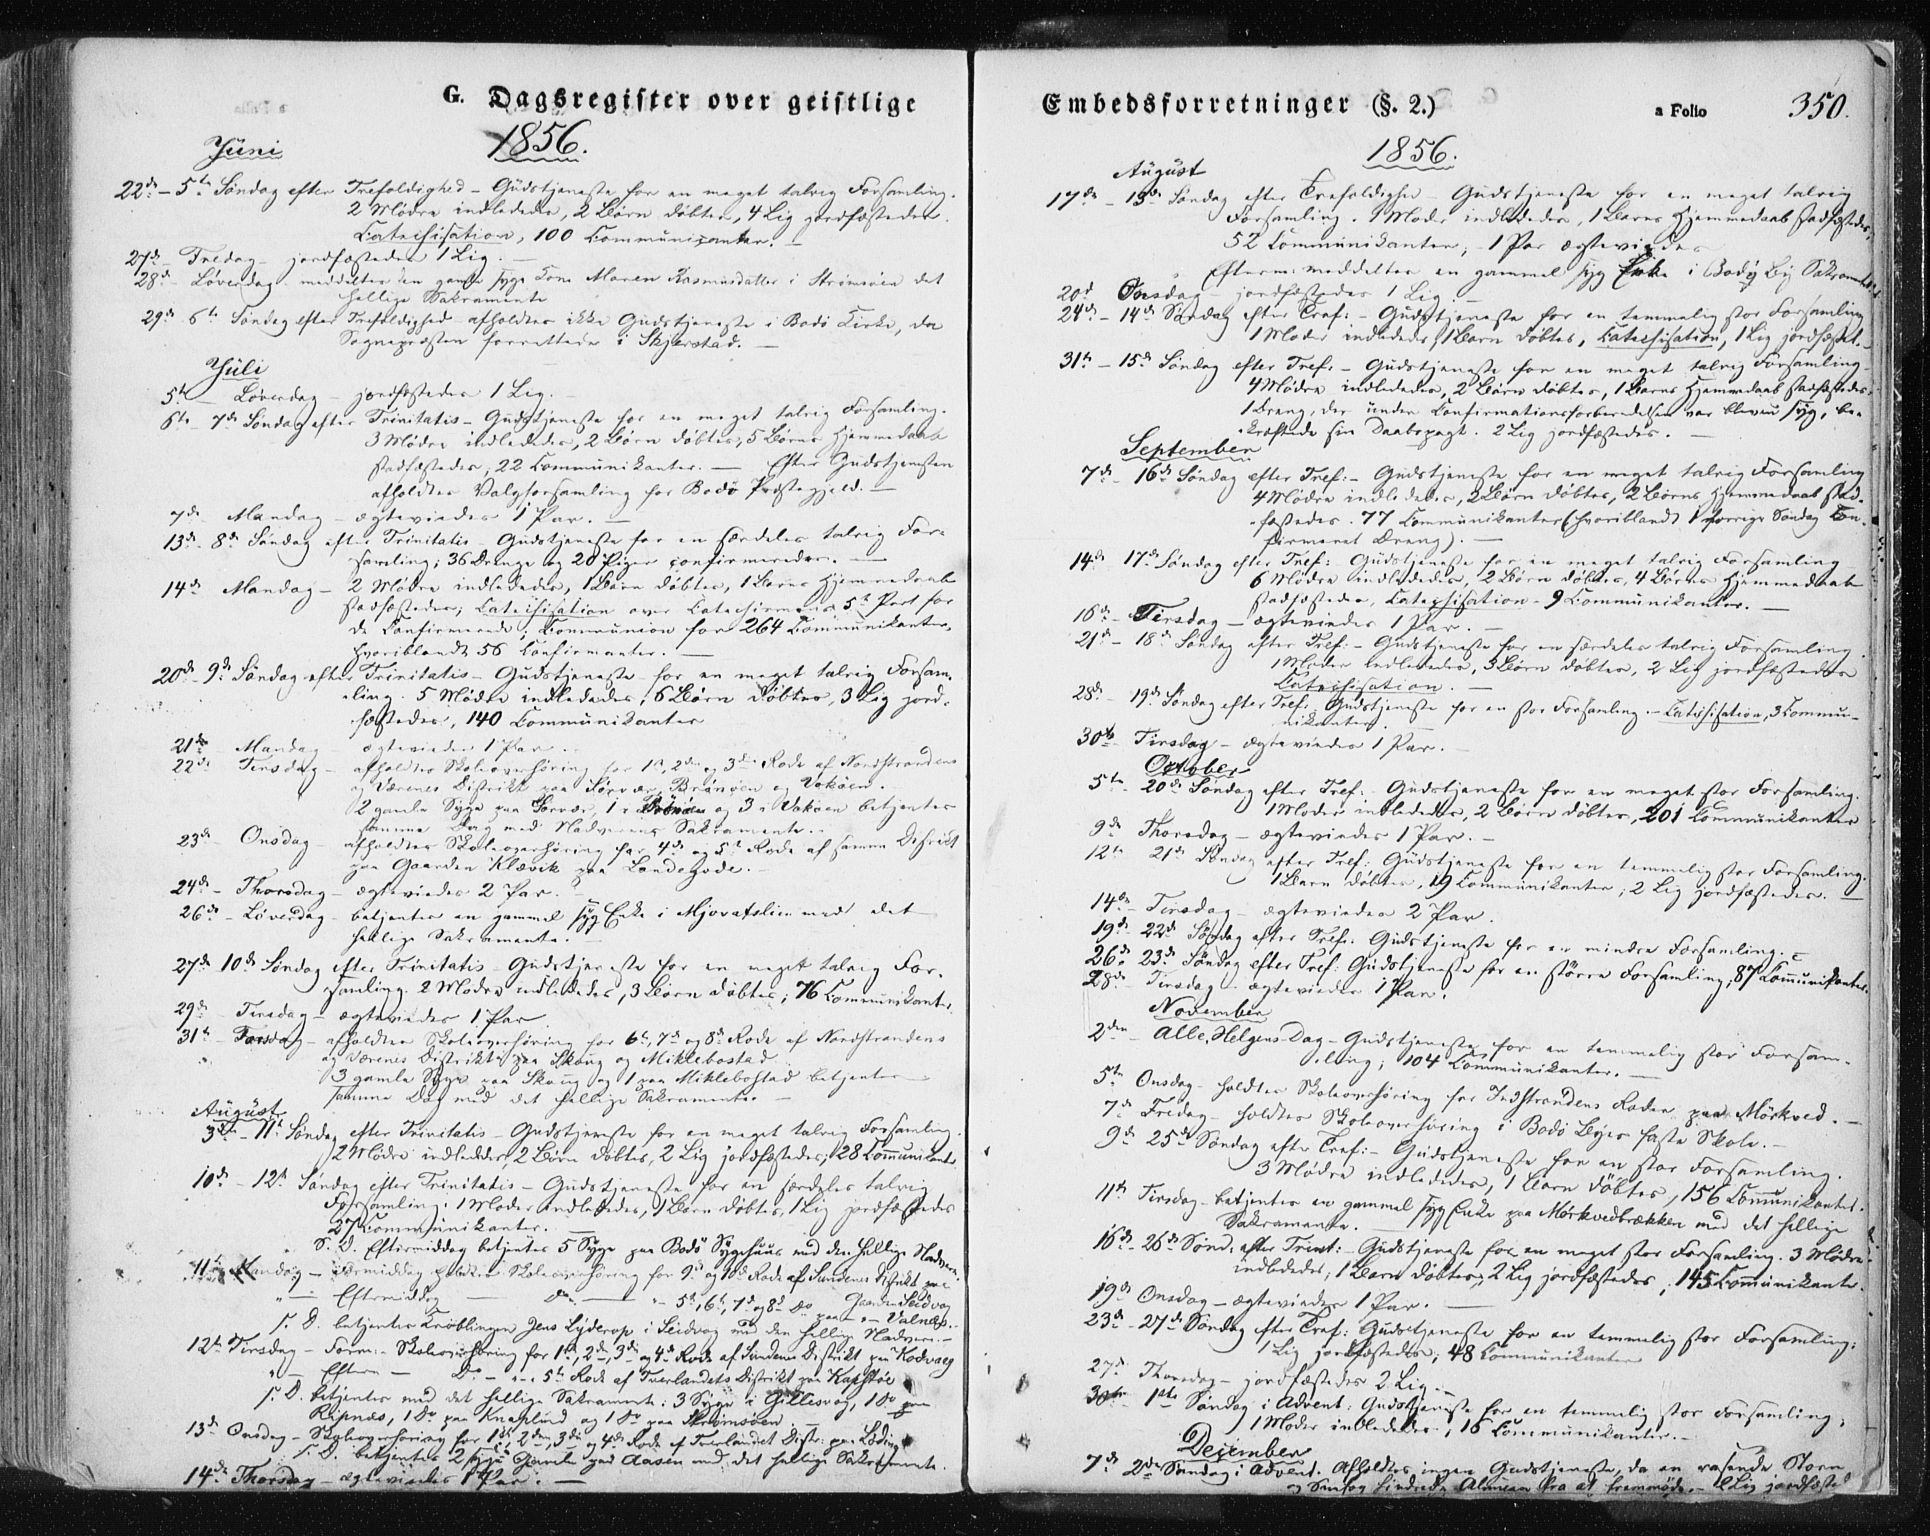 G. Dagsregister over geistlige
1856.
Juni
22de – 5te Søndag efter Trefoldighed – Gudstjeneste for en meget talrig Forsamling.
2 Mødre indlededes, 2 Børn døbtes, 4 Lig jordfæstedes.
Catechisation, 100 Communicanter. –
27de – Fredag – jordfæstedes 1 Lig. –
28de – Løverdag – meddeltes den gamle syge Kone Maren Rasmusdatter i Strømsøen det
hellige Sakramente
29de 6te Søndag efter Trefoldighed afholdtes ikke Gudstjeneste i Bodø Kirke, da
Sognepræsten forrettede i Skjerstad. –
Juli
5te – Løverdag – jordfæstedes 1 Lig. –
6te – 7de Søndag efter Trinitatis – Gudstjeneste for en meget talrig Forsamling.
3 Mødre indlededes, 2 Børn døbtes, 5 Børns Hjemmedaab
stadfæstedes, 22 Communikanter. – Efter Gudstjenesten
afholdtes Valgforsamling for Bodø Præstegjeld. –
7de – Mandag – ægteviedes 1 Par. –
13de – 8de Søndag efter Trinitatis – Gudstjeneste for en særdeles talrig For-
samling; 36 Drenge og 20 Piger confirmeredes. –
14de Mandag – 2 Mødre indlededes, 1 Barn døbtes, 1 Barns Hjemmedaab
stadfæstedes; Catechisation over Catechismens 5te Part for
de Confirmerede; Communion for 264 Communikanter,
hvoriblandt 56 Confirmanter. –
20de – 9de Søndag efter Trinitatis – Gudstjeneste for en meget talrig Forsam-
ling. 5 Mødre indlededes, 6 Børn døbtes, 3 Lig jord-
fæstedes, 140 Communikanter
21de – Mandag – ægteviedes 1 Par. –
22de – Tirsdag – afholdtes Skoleoverhøring for 1ste, 2den og 3die Rode af Nordstrandens
og Værenes Distrikt paa Sørvær, Brænøen og Vokøen. –
2 gamle Syge paa Sørvær, 1 i Brænøen og 3 i Vokøen betjentes
samme Dag med Nadverens Sakramente. –
23de – Onsdag – afholdtes Skoleoverhøring for 4de og 5te Rode af samme Distrikt
paa Gaarden Kløvik paa Landegode. –
24de – Thorsdag – ægteviedes 2 Par. –
26de – Løverdag – betjentes en gammel syg Enke i Mjovatslien med det
hellige Sakramente. –
27de 10de Søndag efter Trinitatis – Gudstjeneste for en meget talrig For-
samling. 2 Mødre indlededes, 3 Børn døbtes; 76 Communikanter.
29de – Tirsdag – ægteviedes 1 Par.
31te – Torsdag – afholdtes Skoleoverhøring for 6te, 7de og 8de Rode af Nordstrandens
og Værenes Distrikt paa Skaug og Miklebostad.
3 gamle Syge paa Skaug og 1 paa Miklebostad betjentes
samme Dag med det hellige Sakramente. –
August
3die – 11te Søndag efter Trinitatis – Gudstjeneste for en meget talrig Forsamling.
2 Mødre indlededes, 2 Børn døbtes, 2 Lig jordfæstedes; 28 Communikanter
10de – 12te Søndag efter Trinitatis – Gudstjeneste for en særdeles talrig
Forsamling: 1 Moder indlededes, 1 Barn døbtes, 1 Lig jordfæstedes
27 Communikanter. –
S. D. Eftermiddag betjentes 5 Syge paa Bodø Sygehuus med den hellige Nadvere.
11te Mandag – Formiddag holdtes Skoleoverhøring for 9de og 10de Rode af Sundenes Distrikt paa
" – Eftermiddag – Do – " – 5te, 6te, 7de og 8de Do Gaarden Seidvog
paa " – Valnes. –
s. D. betjentes Krøblingen Jens Lyderop i Seidvog med den hellige Nadvere. –
12te Tirsdag – Form: – Skoleoverhøring for 1ste, 2den, 3die og 4de Rode af Sundenes Distrikt paa Kodvaag
" – Efterm – Do – " – 5te Rode af Tverlandets Distrikt paa Kapstøe
s. D. betjentes med det hellige Sakramente: 3 Syge i Gillesvog, 1 Do paa
Ripnæs, 1 Do paa Knaplund og 1 Do paa Strømsøen. –
13de Onsdag – Skoleoverhøring for 1ste, 2den, 3die og 4de Rode af Tverlandet Distr: paa Løding
s. D. betjentes 2 syge Gamle paa Aasen med det hellige Sakramente.
14de Thorsdag – ægteviedes 1 Par. –
Embedsforretninger (§. 2.)
a Folio 350.
1856.
August
17de – 13de Søndag efter Trefoldighed – Gudstjeneste for en meget talrig
Forsamling. 1 Moder indlededes, 1 Barns Hjemmedaab stadfæstedes,
52 Communikanter; 1 Par ægteviedes
Efterm: meddeltes en gammel syg Enke i Bodø By Sakramentet
20de Onsdag – jordfæstedes 1 Lig. –
24de – 14de Søndag efter Tref: – Gudstjeneste for en temmelig stor Forsamling
1 Moder indlededes, 1 Barn døbtes, Catechisation, 1 Lig jordfæstet. –
31te – 15de Søndag efter Tref: – Gudstjeneste for en meget talrig Forsamling
4 Mødre indlededes, 2 Børn døbtes, 1 Barns Hjemmedaab stadfæstedes.
1 Dreng, der under Confirmationsforberedelsen var bleven syg, be-
kræftede sin Daabspagt. 2 Lig jordfæstedes. –
September
7de – 16de Søndag efter Tref: – Gudstjeneste for en meget talrig Forsamling
4 Mødre indlededes, 2 Børn døbtes, 2 Børns Hjemmedaab stad-
fæstedes. 77 Communikanter (hvoriblandt 1 forrige Søndag con-
firmeret Dreng). –
14de 17de Søndag efter Tref: Gudstjeneste for en meget talrig Forsamling
6 Mødre indlededes, 2 Børn døbtes, 4 Børns Hjemmedaab
stadfæstedes, Catechisation – 9 Communikanter. –
16de – Tirsdag – ægteviedes 1 Par. –
21de – 18de Søndag efter Tref: – Gudstjeneste for en særdeles talrig Forsamling.
1 Moder indlededes, 3 Børn døbtes, 2 Lig jordfæstedes
Catechisation. –
28de – 19de Søndag efter Tref: Gudstjeneste for en stor Forsamling. – Catechisation, 3 Commu-
nikanter. –
30te – Tirsdag – ægteviedes 1 Par. –
October
5te – 20de Søndag efter Tref: – Gudstjeneste for en meget stor Forsamling.
1 Moder indlededes, 2 Børn døbtes, 201 Communikanter
9de Thorsdag – ægteviedes 1 Par. –
12te 21de Søndag efter Tref: Gudstjeneste for en temmelig stor Forsamling.
1 Barn døbtes, 19 Communikanter; 2 Lig jordfæstedes. –
14de – Tirsdag – ægteviedes 2 Par.
19de – 22de Søndag efter Tref: Gudstjeneste for en mindre Forsamling. –
26de 23de Søndag efter Tref: Gudstjeneste for en større Forsamling; 87 Communikanter.
28de – Tirsdag – ægteviedes 1 Par.
November
2den – Alle Helgens Dag – Gudstjeneste for en temmelig stor Forsam-
ling; 104 Communikanter. –
5te Onsdag – holdtes Skoleoverhøring for Indstrandens Roder paa Mørkved. –
7de Fredag – holdtes Skoleoverhøring i Bodø Byes faste Skole. –
9de 25de Søndag efter Tref: – Gudstjeneste for en stor Forsamling.
3 Mødre indlededes, 1 Barn døbtes, 156 Communikanter.
11te Tirsdag – betjentes en gammel syg Enke paa Mørkvedbrækken med det hellige
Sakramente. –
16de – 26de Sønd: efter Trinit: – Gudstjeneste for en meget stor Forsamling. 3 Mødre
indlededes; 1 Barn døbtes, 2 Lig jordfæstedes, 145 Communikanter.
19de Onsdag – ægteviedes 1 Par. –
23de – 27de Søndag efter Tref: Gudstjeneste for en temmelig stor Forsamling:
1 Lig jordfæstedes, 48 Communikanter
27de Thorsdag – jordfæstedes 2 Lig. –
30te – 1ste Søndag i Advent: Gudstjeneste for en temmelig stor Forsamling,
1 Moder indlededes, 16 Communikanter. –
Dezember
7de 2den Søndag i Advent. Afholdtes ingen Gudstjeneste, da en rasende Storm
og Snefog hindrede Almuen fra at fremmøde. – 2 Lig jordfæstedes